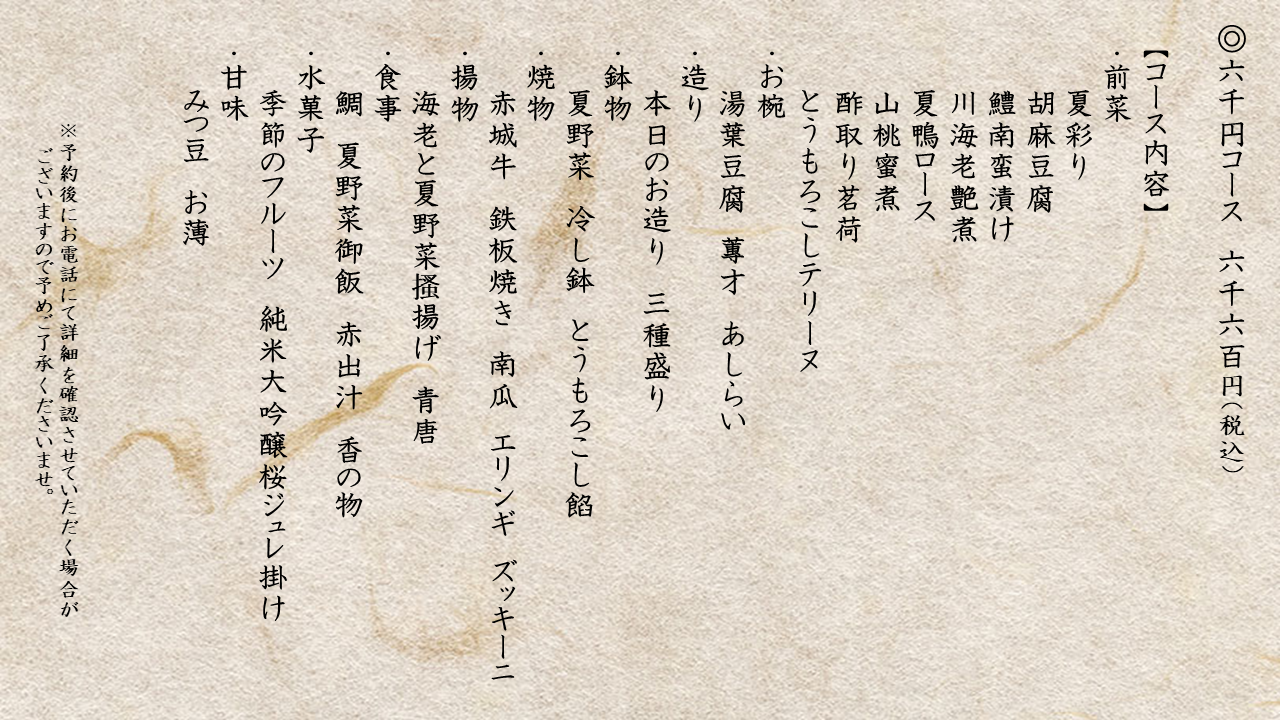 ◎六千円コース　六千六百円（税込）
【コース内容】
・前菜
夏彩り
胡麻豆腐
鱧南蛮漬け
川海老艶煮
夏鴨ロース
山桃蜜煮
酢取り茗荷
とうもろこしテリーヌ
・お椀
湯葉豆腐　蓴才　あしらい
・造り
本日のお造り　三種盛り
・鉢物
夏野菜　冷し鉢　とうもろこし餡
・焼物
赤城牛　鉄板焼き　南瓜　エリンギ　ズッキーニ
・揚物
海老と夏野菜掻揚げ　青唐
・食事
鯛　夏野菜御飯　赤出汁　香の物
・水菓子
季節のフルーツ　純米大吟醸桜ジュレ掛け
・甘味
みつ豆　お薄
※予約後にお電話にて詳細を確認させていただく場合が
ございますので予めご了承くださいませ。